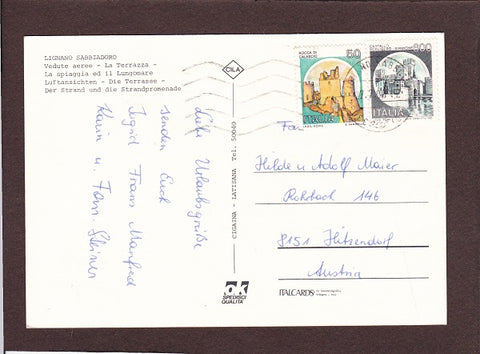 LIGNANO SABBIADORO
Vedute aeree - La Terrazza -
La spiaggia ed il Lungomare
Luftansichten - Die Terrasse -
Der Strand und die Strandpromenade
CILA
Liebe Urlaubsgrüße
senden Euch
Ingrid Franz Manfred
Karin u. Fam. Steiner
CIGAINA - LATISANA Tel. 50069
ROCCA DI
CALASCIO
50
ITALIA
ITALIA
Fam
Hilde u. Adolf Maier
Rohrbach 146
8151 Hitzendorf
Austria
ok
SPEDISCI
QUALITÀ
ITALCARDS